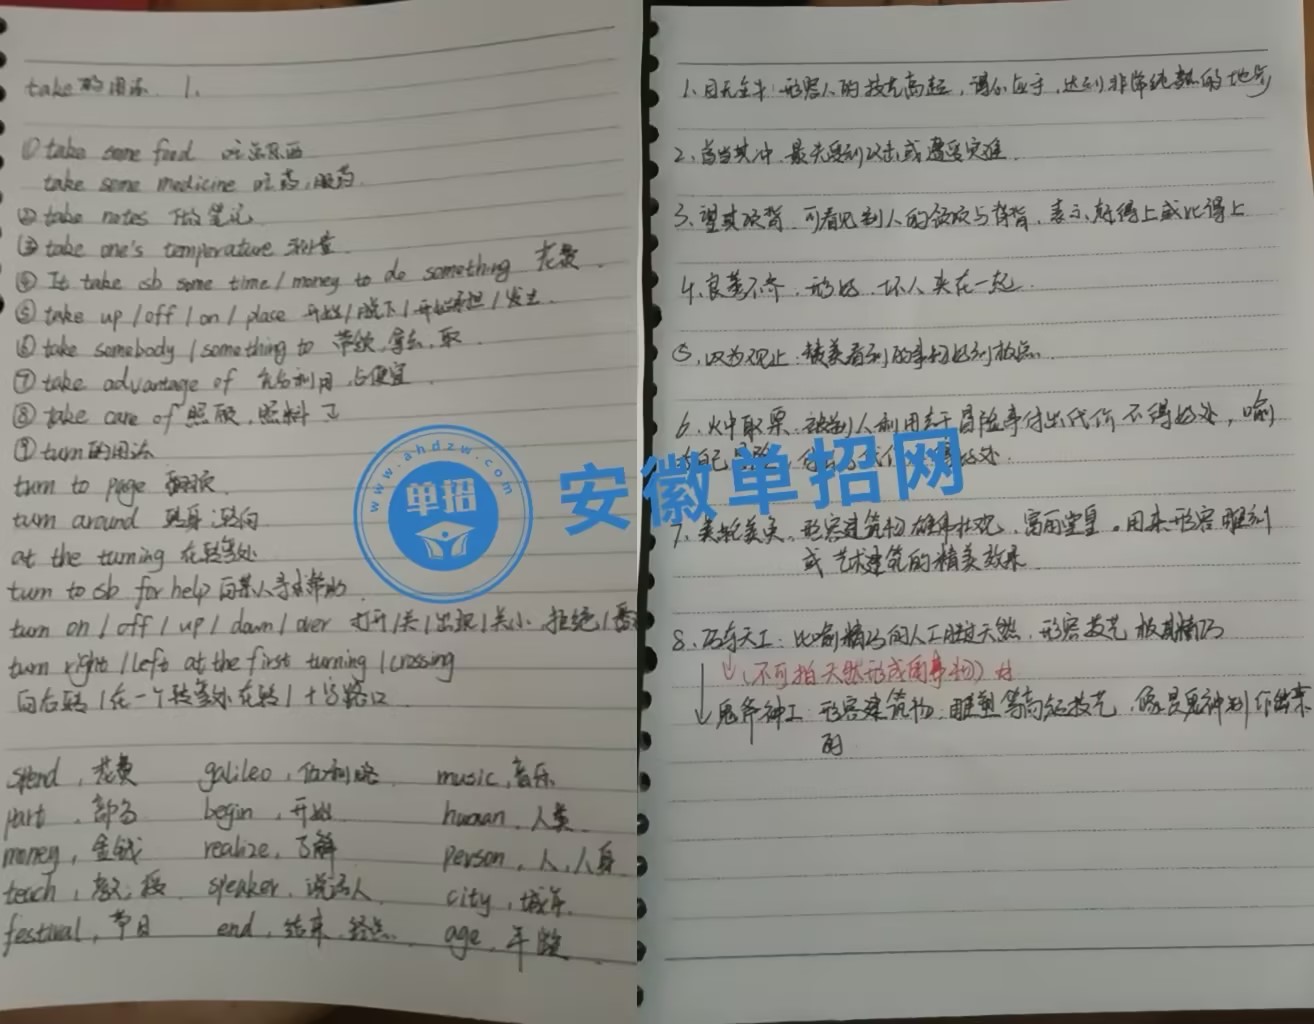 take的用法 1.
① take some food 吃东西
take some medicine 吃药,服药
② take notes 做笔记
③ take one's temperature 测量
④ It take sb some time / money to do something 花费
⑤ take up / off / on / place 开始/脱下/开始承担/发生
⑥ take somebody / something to 带领,拿去,取
⑦ take advantage of 利用,占便宜
⑧ take care of 照顾,照料
⑨ turn的用法
turn to page 翻页
turn around 转身,转向
at the turning 在转弯处
turn to sb for help 向某人寻求帮助
turn on / off / up / down / over 打开/关/出现/关小,拒绝/
turn right / left at the first turning / crossing
向右转/在一个转弯处左转/十字路口
spend,花费 galileo,伽利略 music,音乐
part,部分 begin,开始 human,人类
money,金钱 realize,了解 person,人,人身
teach,教,授 speaker,说话人 city,城市
festival,节日 end,结束,终点 age,年龄
1、目无全牛:形容人的技艺高超,得心应手,达到非常纯熟的地步
2、首当其冲,最先受到攻击或遭受灾难
3、望其项背,可看见到人的颈项与背脊,表示赶得上或比得上
4、良莠不齐,形好,坏人夹在一起
5、叹为观止,赞美看到的事物好到极点
6、火中取栗,被别人利用去干冒险事付出代价不得好处,喻
自己
7、美轮美奂,形容建筑物雄伟壮观,富丽堂皇。用来形容雕刻
或艺术建筑的精美效果
8、巧夺天工:比喻精巧的人工胜过天然,形容技艺极其精巧
(不可指天然形成的事物)
鬼斧神工 形容建筑物,雕塑等高超技艺,像是鬼神制作出来
的
www.ahdzw.com
单招
安徽单招网